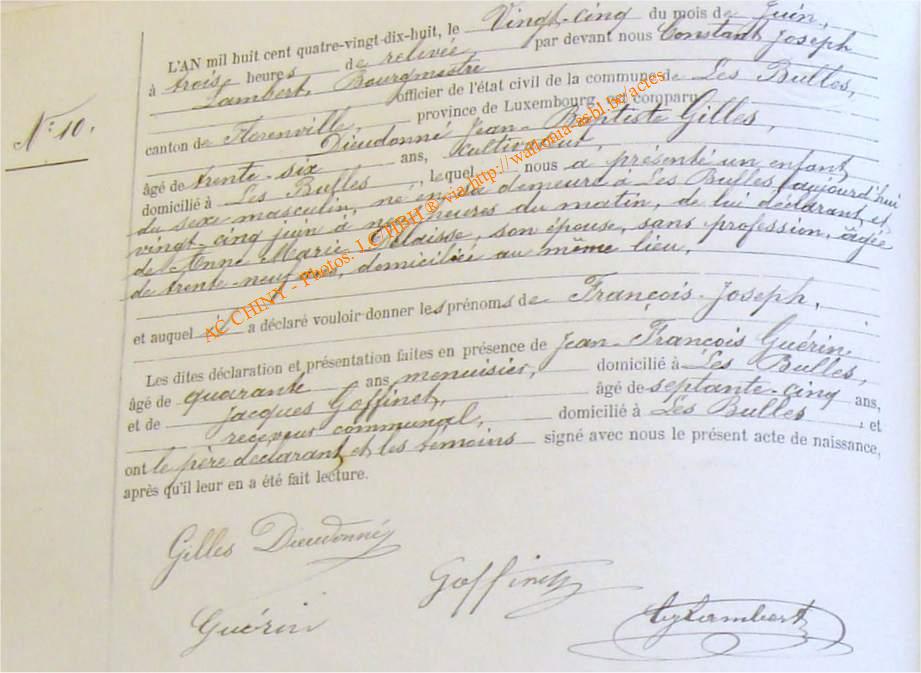 N° 10.
L'AN mil huit cent quatre-vingt-dix-huit, le Vingt-cinq du mois de Juin,
à trois heures de relevée par devant nous Constant Joseph
Lambert, Bourgmestre officier de l'état civil de la commune de Les Bulles,
canton de Florenville, province de Luxembourg, est comparu
Dieudonné Jean-Baptiste Gilles,
âgé de trente-six ans, cultivateur
domicilié à Les Bulles, lequel nous a présenté un enfant
du sexe masculin, né en sa demeure à Les Bulles, aujourd'hui
vingt-cinq juin à heures du matin, de lui déclarant et
de Anne Marie son épouse, sans profession, âgée
de trente-neuf ans, domiciliée au même lieu,
et auquel il a déclaré vouloir donner les prénoms de François-Joseph,
Les dites déclaration et présentation faites en présence de Jean-François Guérin
âgé de quarante ans menuisier, domicilié à Les Bulles,
et de Jacques Goffinet, âgé de septante-cinq ans,
receveur communal, domicilié à Les Bulles, et
ont le père déclarant et les témoins signé avec nous le présent acte de naissance,
après qu'il leur en a été fait lecture.
Gilles Dieudonné
Goffinet
Guérin
Lambert
AC CHINY - Photos: LC HBH ® via http://wallonia-asbl.be/actes